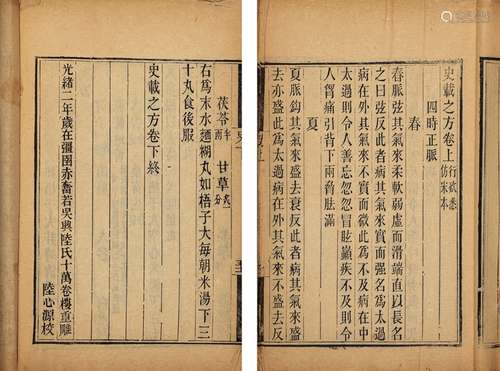 史載之方卷上 行欵悉仿宋本
四時正脈
春
春脈弦其氣來柔軟弱虛而滑端直以長名
之曰弦反此者病其氣來實而强名爲太過
病在外其氣來不實而微此爲不及病在中
太過則令人善忘忽忽冒眩巔疾不及則令
人胷痛引背下兩脅胠滿
夏
夏脈鈎其氣來盛去衰反此者病其氣來盛
去亦盛此爲太過病在外其氣來不盛去反
茯苓半兩 甘草炙分
右爲末水麵糊丸如梧子大每朝米湯下三
十丸食後服
史載之方卷下終
光緒二年歲在彊圉赤奮若吳興陸氏十萬卷樓重雕
陸心源校